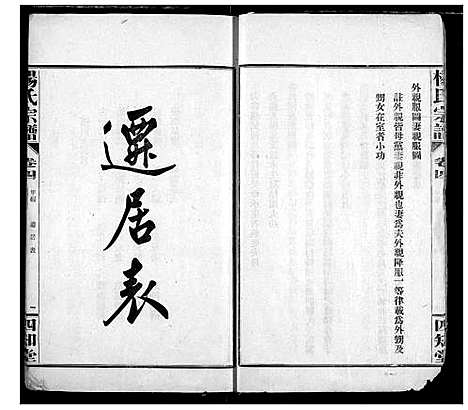 楊氏宗譜
卷四
四知堂
外親服圖妻親服圖
註外親皆母黨妻親非外親也妻爲夫外親降服一等律載爲外甥及
甥女在室者小功
遷居表
楊氏宗譜
卷四
遷居表
一
四知堂